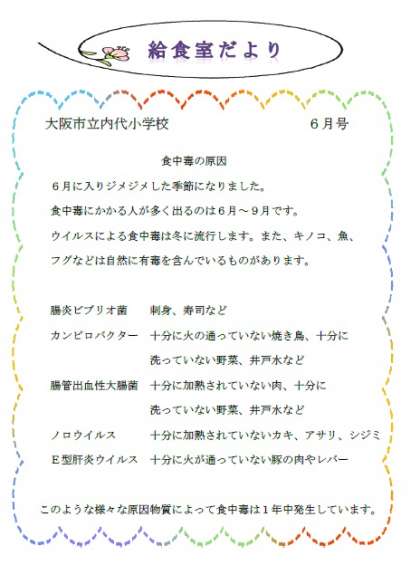 給食室だより
大阪市立内代小学校 6月号
食中毒の原因
6月に入りジメジメした季節になりました。
食中毒にかかる人が多く出るのは6月~9月です。
ウイルスによる食中毒は冬に流行します。また、キノコ、魚、
フグなどは自然に有毒を含んでいるものがあります。
腸炎ビブリオ菌 刺身、寿司など
カンピロバクター 十分に火の通っていない焼き鳥、十分に
洗っていない野菜、井戸水など
腸管出血性大腸菌 十分に加熱されていない肉、十分に
洗っていない野菜、井戸水など
ノロウイルス 十分に加熱されていないカキ、アサリ、シジミ
E型肝炎ウイルス 十分に火が通っていない豚の肉やレバー
このような様々な原因物質によって食中毒は1年中発生しています。